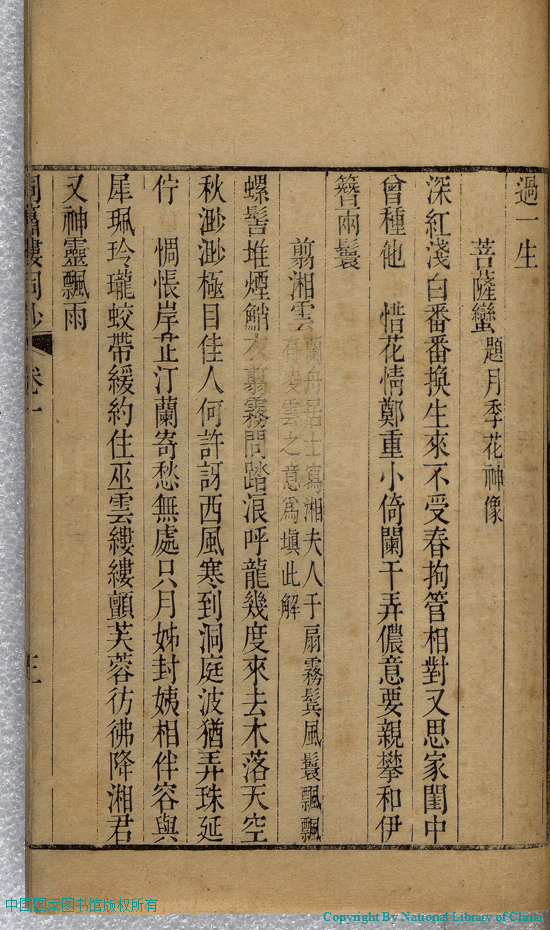 過一生
菩薩蠻 題月季花神像
深紅淺白番番換生來不受春拘管相對又思家閨中
曾種他 惜花情鄭重小倚闌干弄儂意要親攀和伊
簪兩鬟
翦湘雲 蘭舟居士寫湘夫人于扇霧鬂風鬟飄飄
有凌雲之意爲塡此解
螺髻堆煙鮹衣翦霧問踏浪呼龍幾度來去木落天空
秋渺渺極目佳人何許訝西風寒到洞庭波猶弄珠延
佇 惆悵岸芷汀蘭寄愁無處只月姊封姨相伴容與
犀珮玲瓏蛟帶緩約住巫雲縷縷顫芙蓉彷彿降湘君
又神靈飄雨
洞簫樓詞鈔 卷一
中国国家图书馆版权所有
Copyright By National Library of China